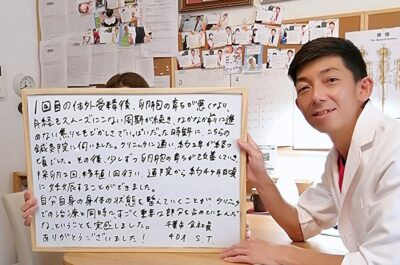 1回目の体外受精後、卵胞の育ちが悪くなり、
月経もスムーズにこない周期が続き、なかなか前に進
めない焦りともどかしさでいっぱいだった時期に、こちらの
鍼灸院に伺いました。クリニックに通い約2年が経つ
頃でした。その後、少しずつ卵胞の育ちも改善していき
採卵2回、移植1回行い、通院から約4ヶ月目頃
に妊娠することができました。
自分自身の身体の状態を整えていくことが、クリニック
での治療と同時に、すごく重要な部分を占めているんだ
な、ということを実感しました。
ありがとうございました!
千葉市
40才 S.T.